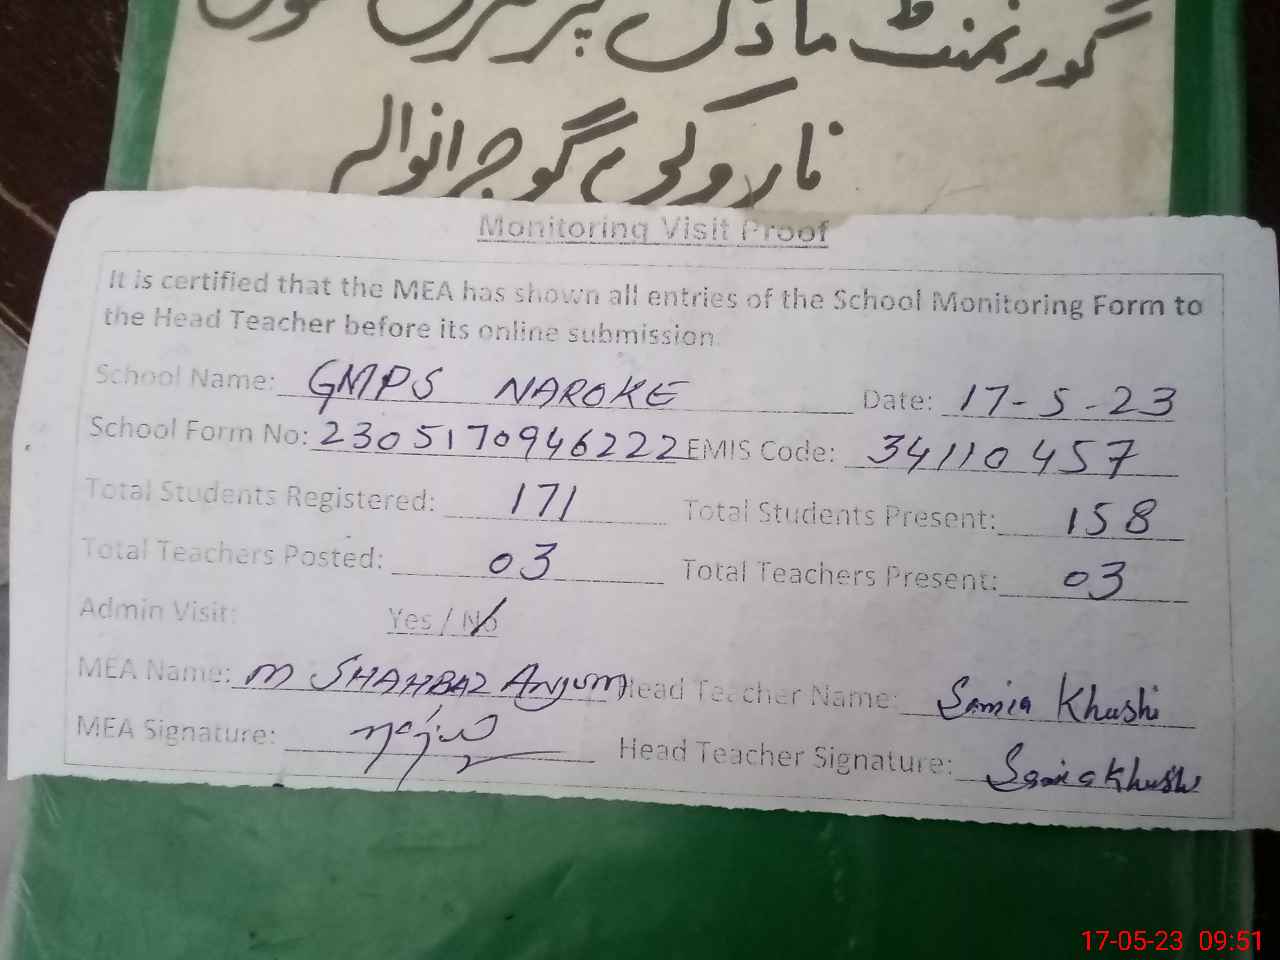 گورنمنٹ ماڈل پرائمری سکول
ناروکی گوجرانوالہ
Monitoring Visit Proof
It is certified that the MEA has shown all entries of the School Monitoring Form to
the Head Teacher before its online submission.
School Name: GMPS NAROKE Date: 17-5-23
School Form No: 2305170946222 EMIS Code: 34110457
Total Students Registered: 171 Total Students Present: 158
Total Teachers Posted: 03 Total Teachers Present: 03
Admin Visit: Yes / No
MEA Name: M SHAHBAZ Anjum Head Teacher Name: Samia Khushi
MEA Signature: Head Teacher Signature: Samia Khushi
17-05-23 09:51